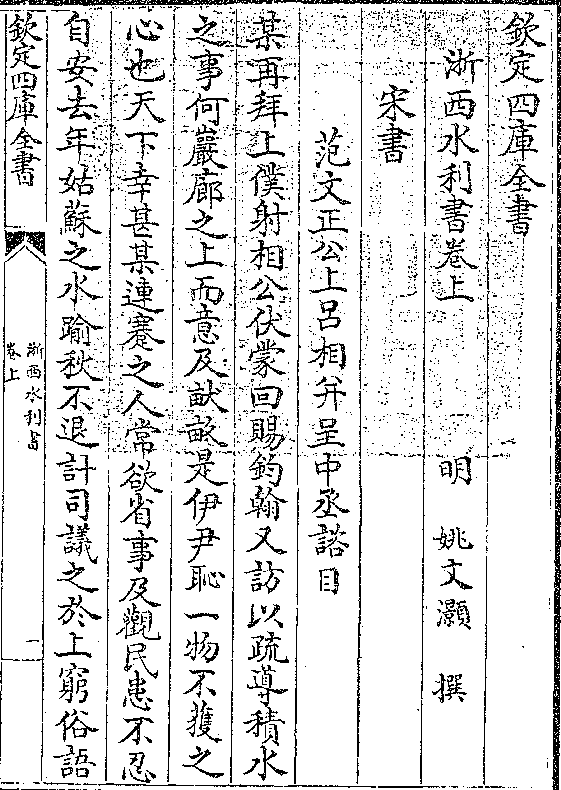 欽定四庫全書
浙西水利書卷上
明 姚文灝 撰
宋書
范文正公上呂相并呈中丞諮目
某再拜上僕射相公伏蒙回賜鈞翰又訪以疏導積水
之事何巖廊之上而意及畎畝是伊尹恥一物不獲之
心也天下幸甚某連蹇之人常欲省事及觀民患不忍
自安去年姑蘇之水踰秋不退計司議之於上窮俗語
欽定四庫全書
浙西水利書
卷上
一